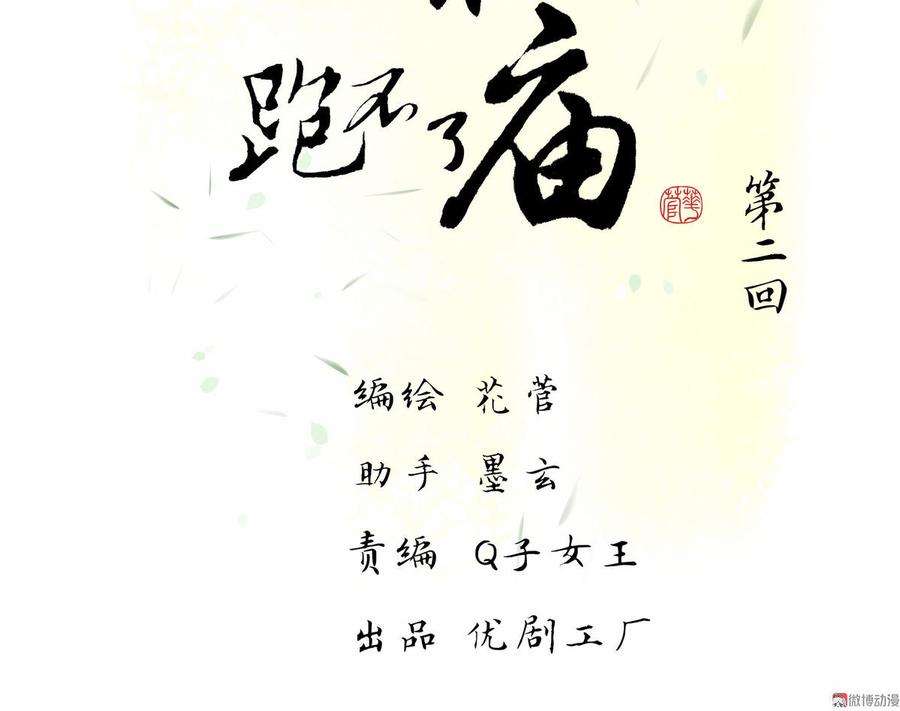 跑不了庙
第二回
编绘 花菅
助手 墨玄
责编 Q子女王
出品 优剧工厂
微博动漫